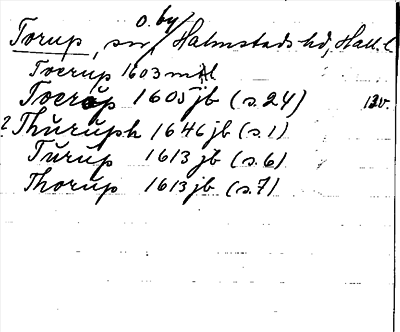 o. by/
Torup, sn, Halmstads hd, Hall. l.
Toerup 1603 mtl
Toerup 1605 jb (s. 24) 12v.
? Thŭrŭph 1646 jb (s. 1)
Tŭrŭp 1613 jb (s. 6)
Thorŭp 1613 jb (s. 7)